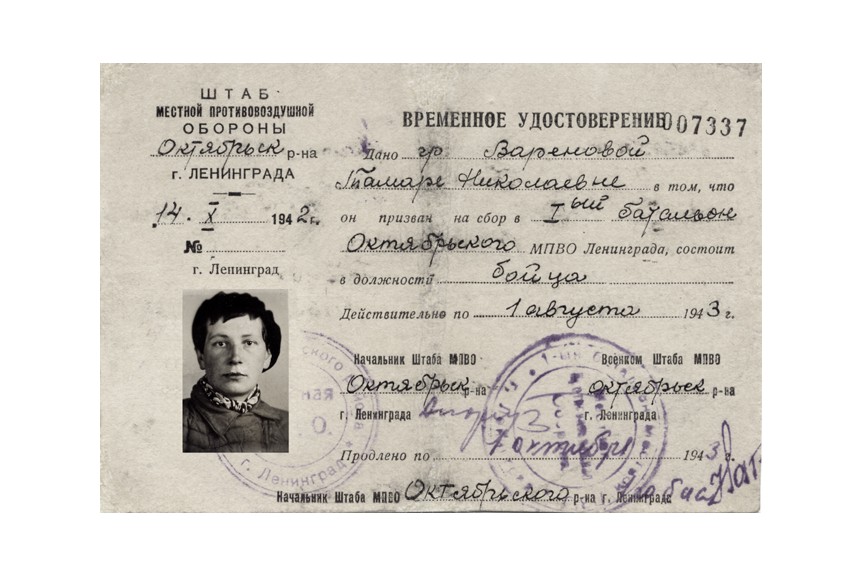 ШТАБ
МЕСТНОЙ ПРОТИВОВОЗДУШНОЙ
ОБОРОНЫ
Октябрьск р-на
г. ЛЕНИНГРАДА
14. X 1942 г.
№
г. Ленинград
ВРЕМЕННОЕ УДОСТОВЕРЕНИЕ 007337
Дано гр Вареновой
Тамаре Николаевне в том, что
он призван на сбор в I ый батальон
Октябрьского МПВО Ленинграда, состоит
в должности бойца
Действительно по 1 августа 1943 г.
Начальник Штаба МПВО
Октябрьск р-на
г. Ленинграда
Военком Штаба МПВО
октябрьск р-на
г. Ленинграда
Продлено по 1 октября 1943 г.
Начальник Штаба МПВО Октябрьского р-на г. Ленинграда
г. Ленинград